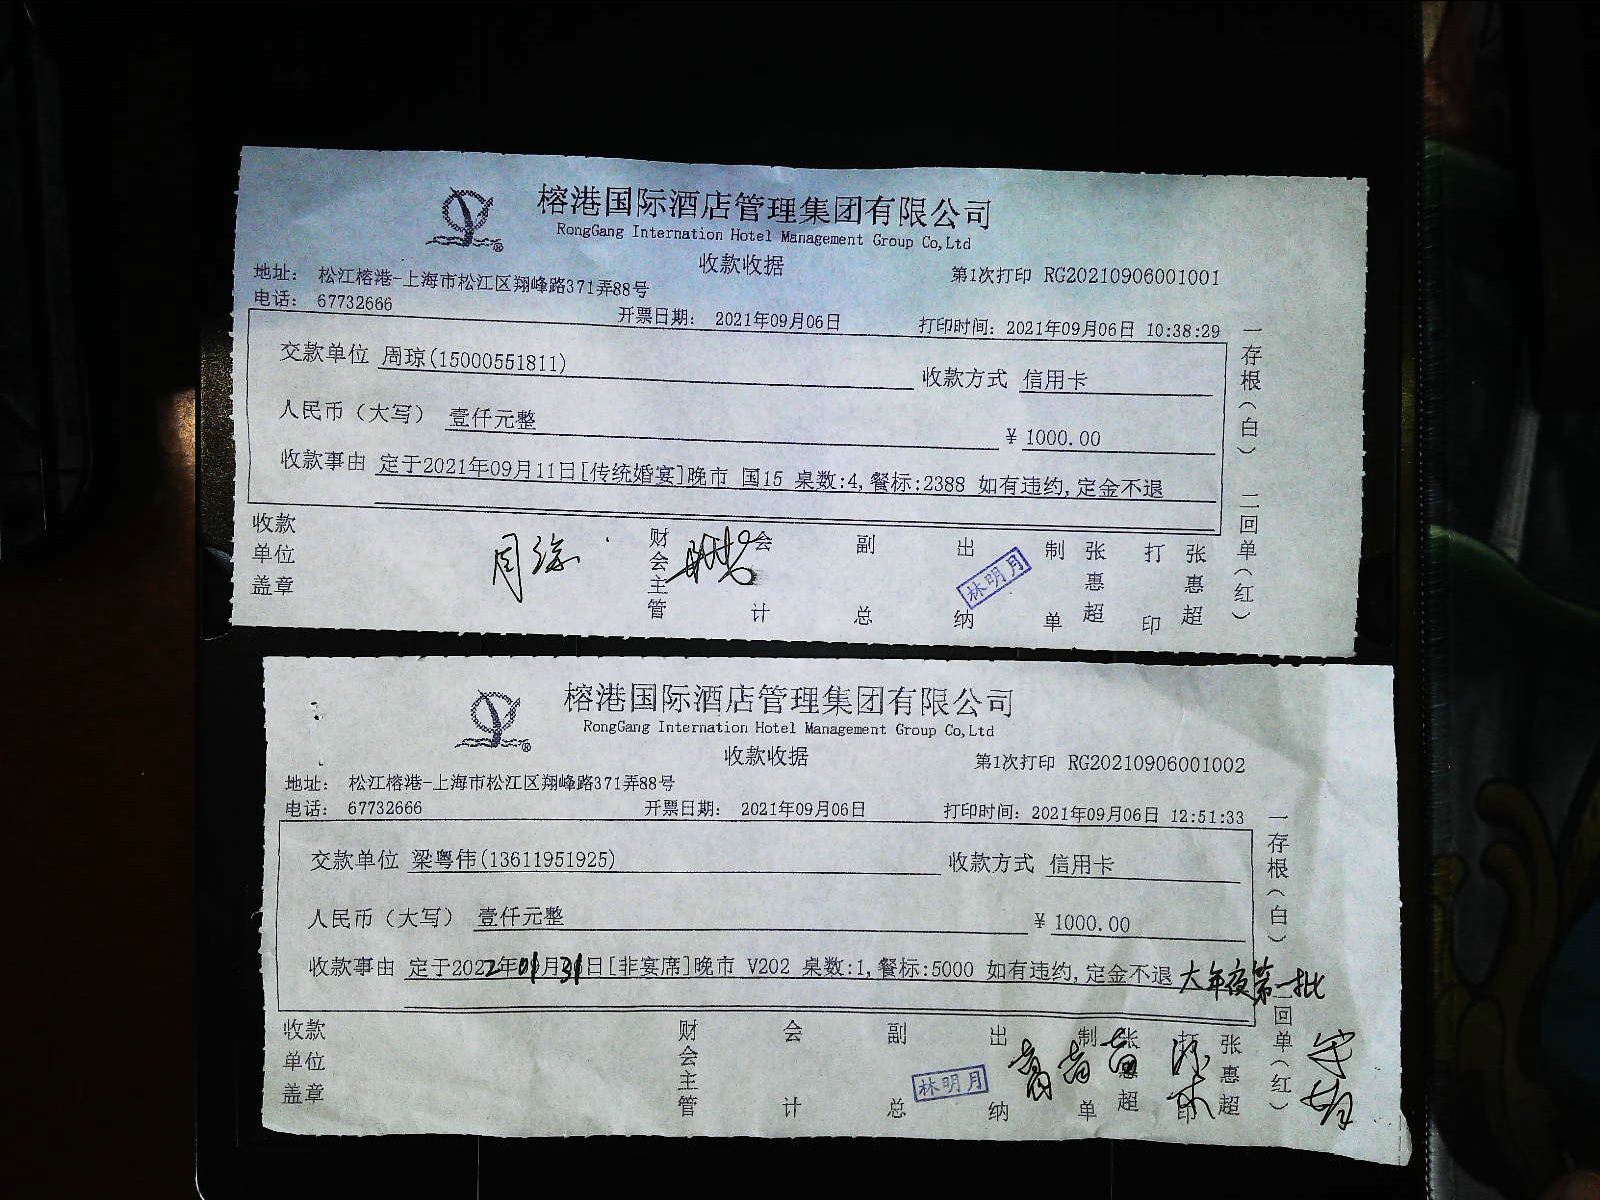 榕港国际酒店管理集团有限公司
RongGang Internation Hotel Management Group Co,Ltd
收款收据
第1次打印 RG20210906001001
地址： 松江榕港-上海市松江区翔峰路371弄88号
电话： 67732666
开票日期： 2021年09月06日
打印时间：2021年09月06日 10:38:29
交款单位 周琼(15000551811)
收款方式 信用卡
人民币（大写） 壹仟元整
¥ 1000.00
收款事由 定于2021年09月11日[传统婚宴]晚市 国15 桌数:4,餐标:2388 如有违约,定金不退
一存根（白） 二回单（红）
收款单位盖章
周琼
财会主管
会计
副总
出纳
林明月
制单
张惠超
打印
张惠超
榕港国际酒店管理集团有限公司
RongGang Internation Hotel Management Group Co,Ltd
收款收据
第1次打印 RG20210906001002
地址： 松江榕港-上海市松江区翔峰路371弄88号
电话： 67732666
开票日期： 2021年09月06日
打印时间：2021年09月06日 12:51:33
交款单位 梁粤伟(13611951925)
收款方式 信用卡
人民币（大写） 壹仟元整
¥ 1000.00
收款事由 定于2022年01月31日[非宴席]晚市 V202 桌数:1,餐标:5000 如有违约,定金不退 大年夜第一批
一存根（白） 二回单（红）
收款单位盖章
财会主管
会计
副总
出纳
林明月
制单
张惠超
打印
张惠超